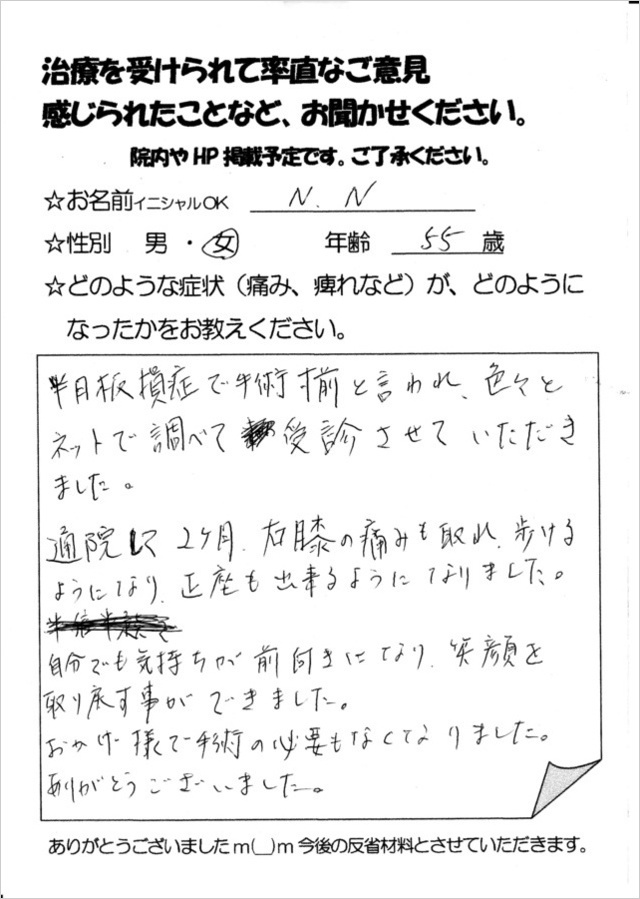 治療を受けられて率直なご意見
感じられたことなど、お聞かせください。
院内やHP掲載予定です。ご了承ください。
☆お名前イニシャルOK N. N
☆性別 男・女 年齢 55歳
☆どのような症状（痛み、痺れなど）が、どのように
なったかをお教えください。
半月板損症で手術寸前と言われ、色々と
ネットで調べて受診させていただき
ました。
通院して2ケ月、右膝の痛みも取れ、歩ける
ようになり、正座も出来るようになりました。
自分でも気持ちが前向きになり、笑顔を
取り戻す事ができました。
おかげ様で手術の必要もなくなりました。
ありがとうございました。
ありがとうございましたm(__)m今後の反省材料とさせていただきます。